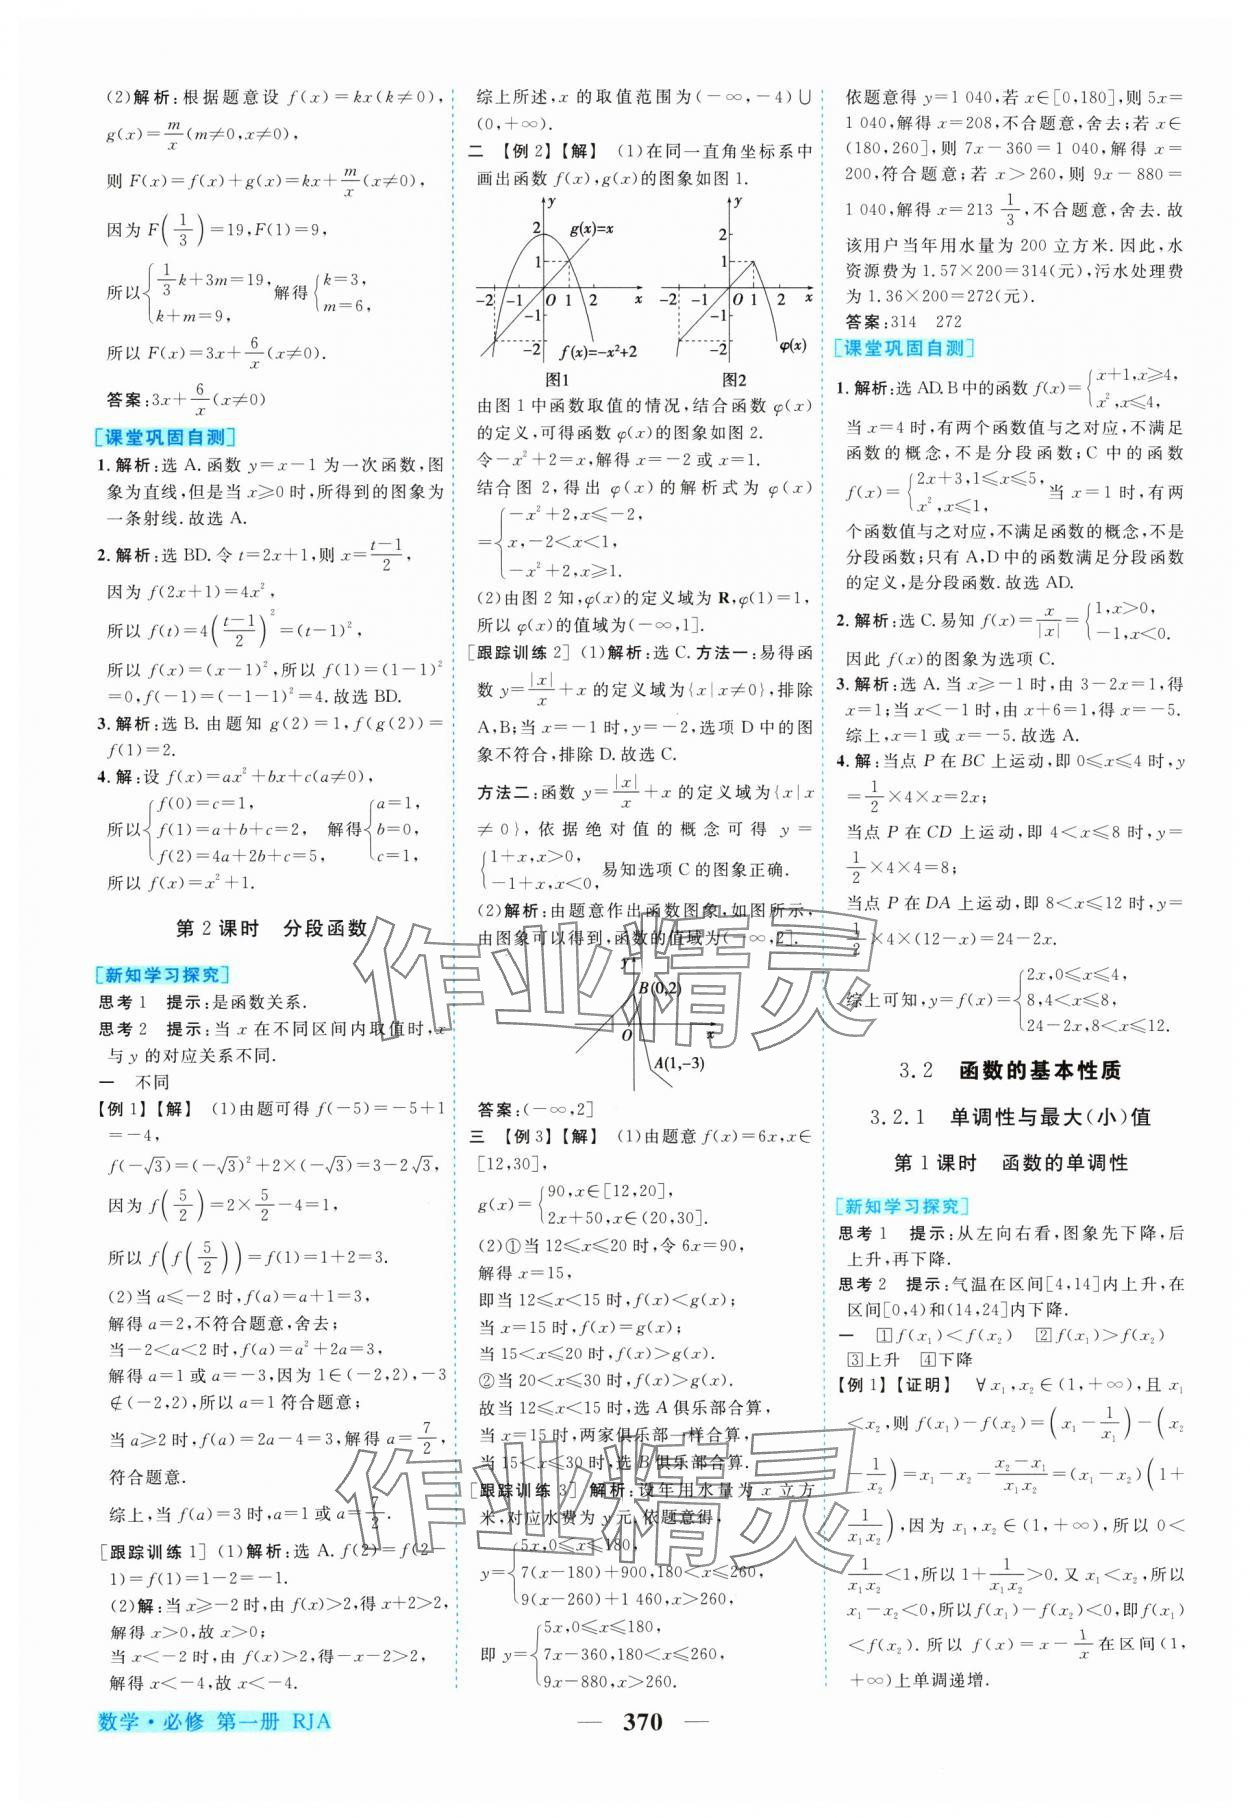 (2)解析:根据题意设 f(x)=kx(k≠0),
g(x)=m/x(m≠0,x≠0),
则 F(x)=f(x)+g(x)=kx+m/x(x≠0),
因为 F(1/3)=19,F(1)=9,
所以{1/3k+3m=19, k+m=9, 解得{k=3, m=6,
所以 F(x)=3x+6/x(x≠0).
答案:3x+6/x(x≠0)
[课堂巩固自测]
1.解析:选 A.函数 y=x-1 为一次函数,图
象为直线,但是当 x≥0 时,所得到的图象为
一条射线.故选 A.
2.解析:选 BD.令 t=2x+1,则 x=(t-1)/2,
因为 f(2x+1)=4x²,
所以 f(t)=4((t-1)/2)²=(t-1)²,
所以 f(x)=(x-1)²,所以 f(1)=(1-1)²
=0,f(-1)=(-1-1)²=4.故选 BD.
3.解析:选 B.由题知 g(2)=1,f(g(2))=
f(1)=2.
4.解:设 f(x)=ax²+bx+c(a≠0),
所以{f(0)=c=1, f(1)=a+b+c=2, f(2)=4a+2b+c=5, 解得{a=1, b=0, c=1,
所以 f(x)=x²+1.
第 2 课时 分段函数
[新知学习探究]
思考 1 提示:是函数关系.
思考 2 提示:当 x 在不同区间内取值时,x
与 y 的对应关系不同.
一 不同
【例 1】【解】 (1)由题可得 f(-5)=-5+1
=-4,
f(-√3)=(-√3)²+2×(-√3)=3-2√3.
因为 f(5/2)=2×5/2-4=1,
所以 f(f(5/2))=f(1)=1+2=3.
(2)当 a≤-2 时,f(a)=a+1=3,
解得 a=2,不符合题意,舍去;
当-2<a<2 时,f(a)=a²+2a=3,
解得 a=1 或 a=-3,因为 1∈(-2,2),-3
∉(-2,2),所以 a=1 符合题意;
当 a≥2 时,f(a)=2a-4=3,解得 a=7/2,
符合题意.
综上,当 f(a)=3 时,a=1 或 a=7/2.
[跟踪训练 1] (1)解析:选 A.f(2)=f(2-
1)=f(1)=1-2=-1.
(2)解:当 x≥-2 时,由 f(x)>2,得 x+2>2,
解得 x>0,故 x>0;
当 x<-2 时,由 f(x)>2,得-x-2>2,
解得 x<-4,故 x<-4.
综上所述,x 的取值范围为(-∞,-4)∪
(0,+∞).
二 【例 2】【解】 (1)在同一直角坐标系中
画出函数 f(x),g(x)的图象如图 1.
y 2 1 g(x)=x -2 -1 O 1 2 x -1 -2 f(x)=-x²+2
y 2 1 -2 -1 O 1 2 x -1 -2 φ(x)
图1 图2
由图 1 中函数取值的情况,结合函数 φ(x)
的定义,可得函数 φ(x)的图象如图 2.
令-x²+2=x,解得 x=-2 或 x=1.
结合图 2,得出 φ(x)的解析式为 φ(x)
={-x²+2,x≤-2, x,-2<x<1, -x²+2,x≥1.
(2)由图 2 知,φ(x)的定义域为 R,φ(1)=1,
所以 φ(x)的值域为(-∞,1].
[跟踪训练 2] (1)解析:选 C.方法一:易得函
数 y=|x|/x+x 的定义域为{x|x≠0},排除
A,B;当 x=-1 时,y=-2,选项 D 中的图
象不符合,排除 D.故选 C.
方法二:函数 y=|x|/x+x 的定义域为{x|x
≠0},依据绝对值的概念可得 y=
{1+x,x>0, -1+x,x<0, 易知选项 C 的图象正确.
(2)解析:由题意作出函数图象,如图所示,
由图象可以得到,函数的值域为(-∞,2].
y B(0,2) O x A(1,-3)
答案:(-∞,2]
三 【例 3】【解】 (1)由题意 f(x)=6x,x∈
[12,30],
g(x)={90,x∈[12,20], 2x+50,x∈(20,30].
(2)①当 12≤x≤20 时,令 6x=90,
解得 x=15,
即当 12≤x<15 时,f(x)<g(x);
当 x=15 时,f(x)=g(x);
当 15<x≤20 时,f(x)>g(x).
②当 20<x≤30 时,f(x)>g(x),
故当 12≤x<15 时,选 A 俱乐部合算,
当 x=15 时,两家俱乐部一样合算,
当 15<x≤30 时,选 B 俱乐部合算.
[跟踪训练 3] 解析:设年用水量为 x 立方
米,对应水费为 y 元,依题意得,
y={5x,0≤x≤180, 7(x-180)+900,180<x≤260, 9(x-260)+1 460,x>260,
即 y={5x,0≤x≤180, 7x-360,180<x≤260, 9x-880,x>260.
依题意得 y=1 040,若 x∈[0,180],则 5x=
1 040,解得 x=208,不合题意,舍去;若 x∈
(180,260],则 7x-360=1 040,解得 x=
200,符合题意;若 x>260,则 9x-880=
1 040,解得 x=213 1/3,不合题意,舍去.故
该用户当年用水量为 200 立方米.因此,水
资源费为 1.57×200=314(元),污水处理费
为 1.36×200=272(元).
答案:314 272
[课堂巩固自测]
1.解析:选 AD.B 中的函数 f(x)={x+1,x≥4, x²,x≤4,
当 x=4 时,有两个函数值与之对应,不满足
函数的概念,不是分段函数;C 中的函数
f(x)={2x+3,1≤x≤5, x²,x≤1, 当 x=1 时,有两
个函数值与之对应,不满足函数的概念,不是
分段函数;只有 A,D 中的函数满足分段函数
的定义,是分段函数.故选 AD.
2.解析:选 C.易知 f(x)=x/|x|={1,x>0, -1,x<0.
因此 f(x)的图象为选项 C.
3.解析:选 A.当 x≥-1 时,由 3-2x=1,得
x=1;当 x<-1 时,由 x+6=1,得 x=-5.
综上,x=1 或 x=-5.故选 A.
4.解:当点 P 在 BC 上运动,即 0≤x≤4 时,y
=1/2×4×x=2x;
当点 P 在 CD 上运动,即 4<x≤8 时,y=
1/2×4×4=8;
当点 P 在 DA 上运动,即 8<x≤12 时,y=
1/2×4×(12-x)=24-2x.
综上可知,y=f(x)={2x,0≤x≤4, 8,4<x≤8, 24-2x,8<x≤12.
3.2 函数的基本性质
3.2.1 单调性与最大(小)值
第 1 课时 函数的单调性
[新知学习探究]
思考 1 提示:从左向右看,图象先下降,后
上升,再下降.
思考 2 提示:气温在区间[4,14]内上升,在
区间[0,4)和(14,24]内下降.
一 1 f(x₁)<f(x₂) 2 f(x₁)>f(x₂)
3 上升 4 下降
【例 1】【证明】 ∀x₁,x₂∈(1,+∞),且 x₁
<x₂,则 f(x₁)-f(x₂)=(x₁-1/x₁)-(x₂
-1/x₂)=x₁-x₂-(x₂-x₁)/(x₁x₂)=(x₁-x₂)(1+
1/(x₁x₂)),因为 x₁,x₂∈(1,+∞),所以 0<
1/(x₁x₂)<1,所以 1+1/(x₁x₂)>0.又 x₁<x₂,所以
x₁-x₂<0,所以 f(x₁)-f(x₂)<0,即 f(x₁)
<f(x₂).所以 f(x)=x-1/x 在区间(1,
+∞)上单调递增.
作业精灵
作业精灵
数学·必修 第一册 RJA
— 370 —